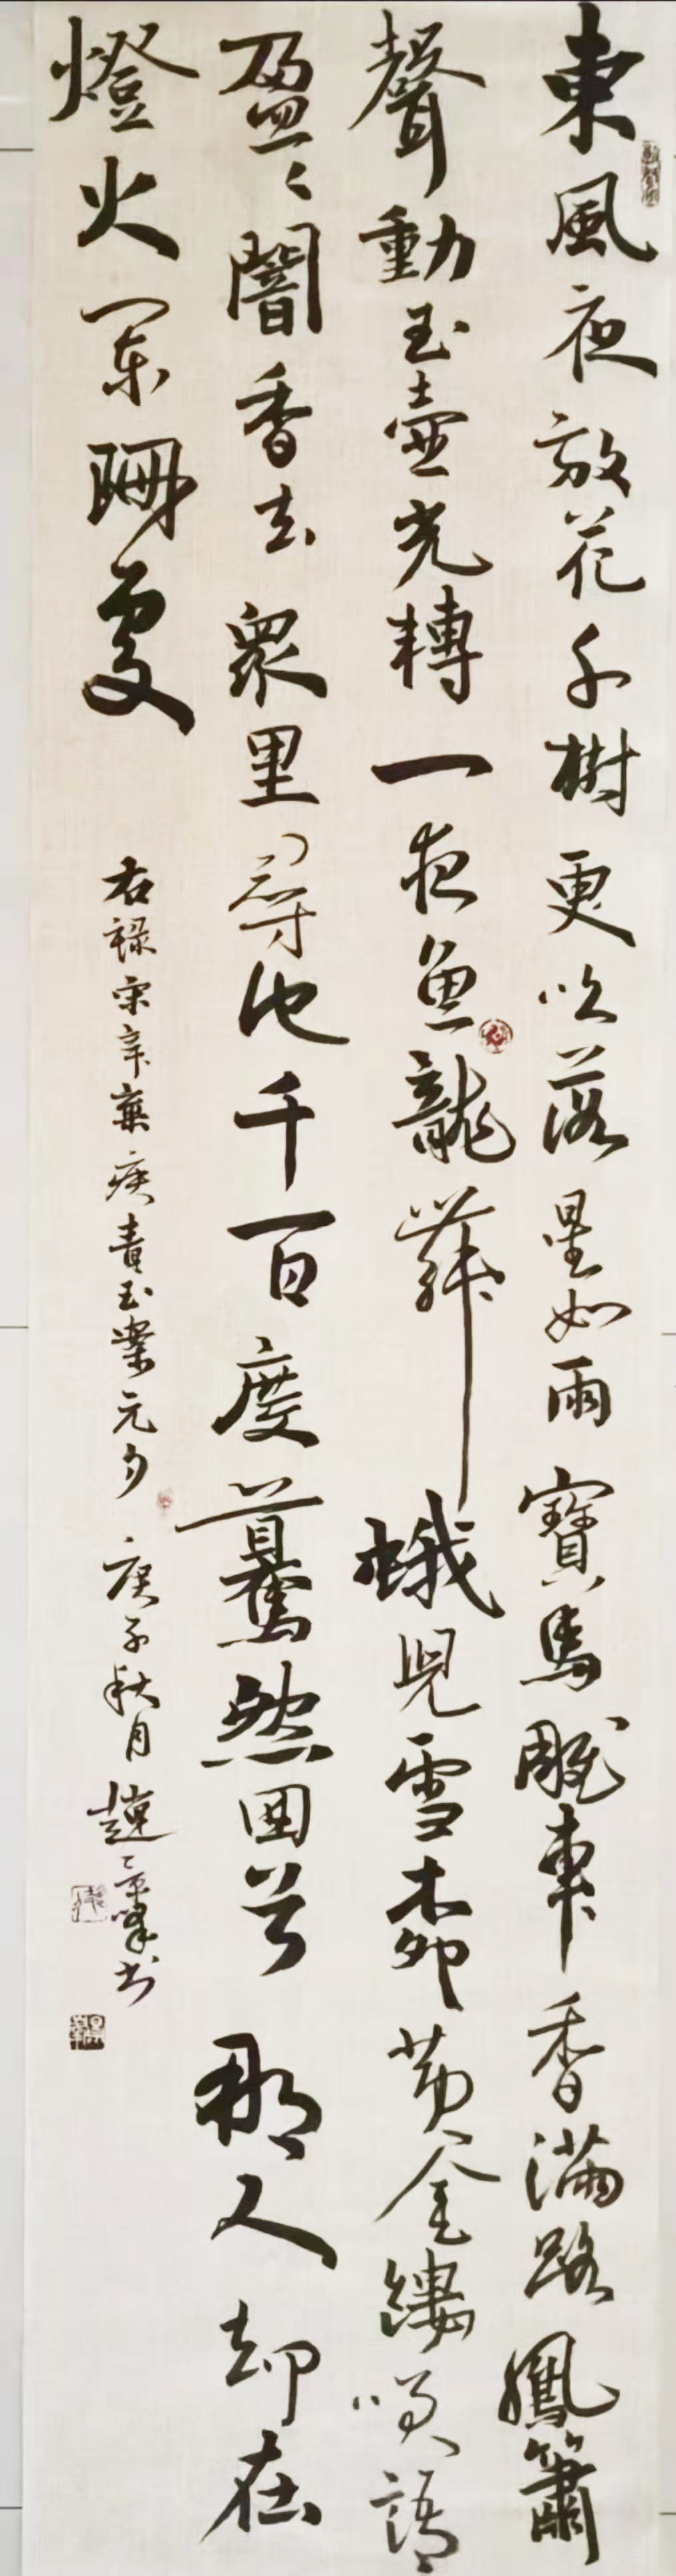 東風夜放花千樹更吹落星如雨寶馬雕車香滿路鳳簫
聲動玉壺光轉一夜魚龍舞蛾兒雪柳黃金縷笑語
盈〻闇香去衆里尋他千百度驀然回首那人却在
燈火闌珊處
右録宋辛棄疾青玉案元夕 庚子秋月趙景峰书